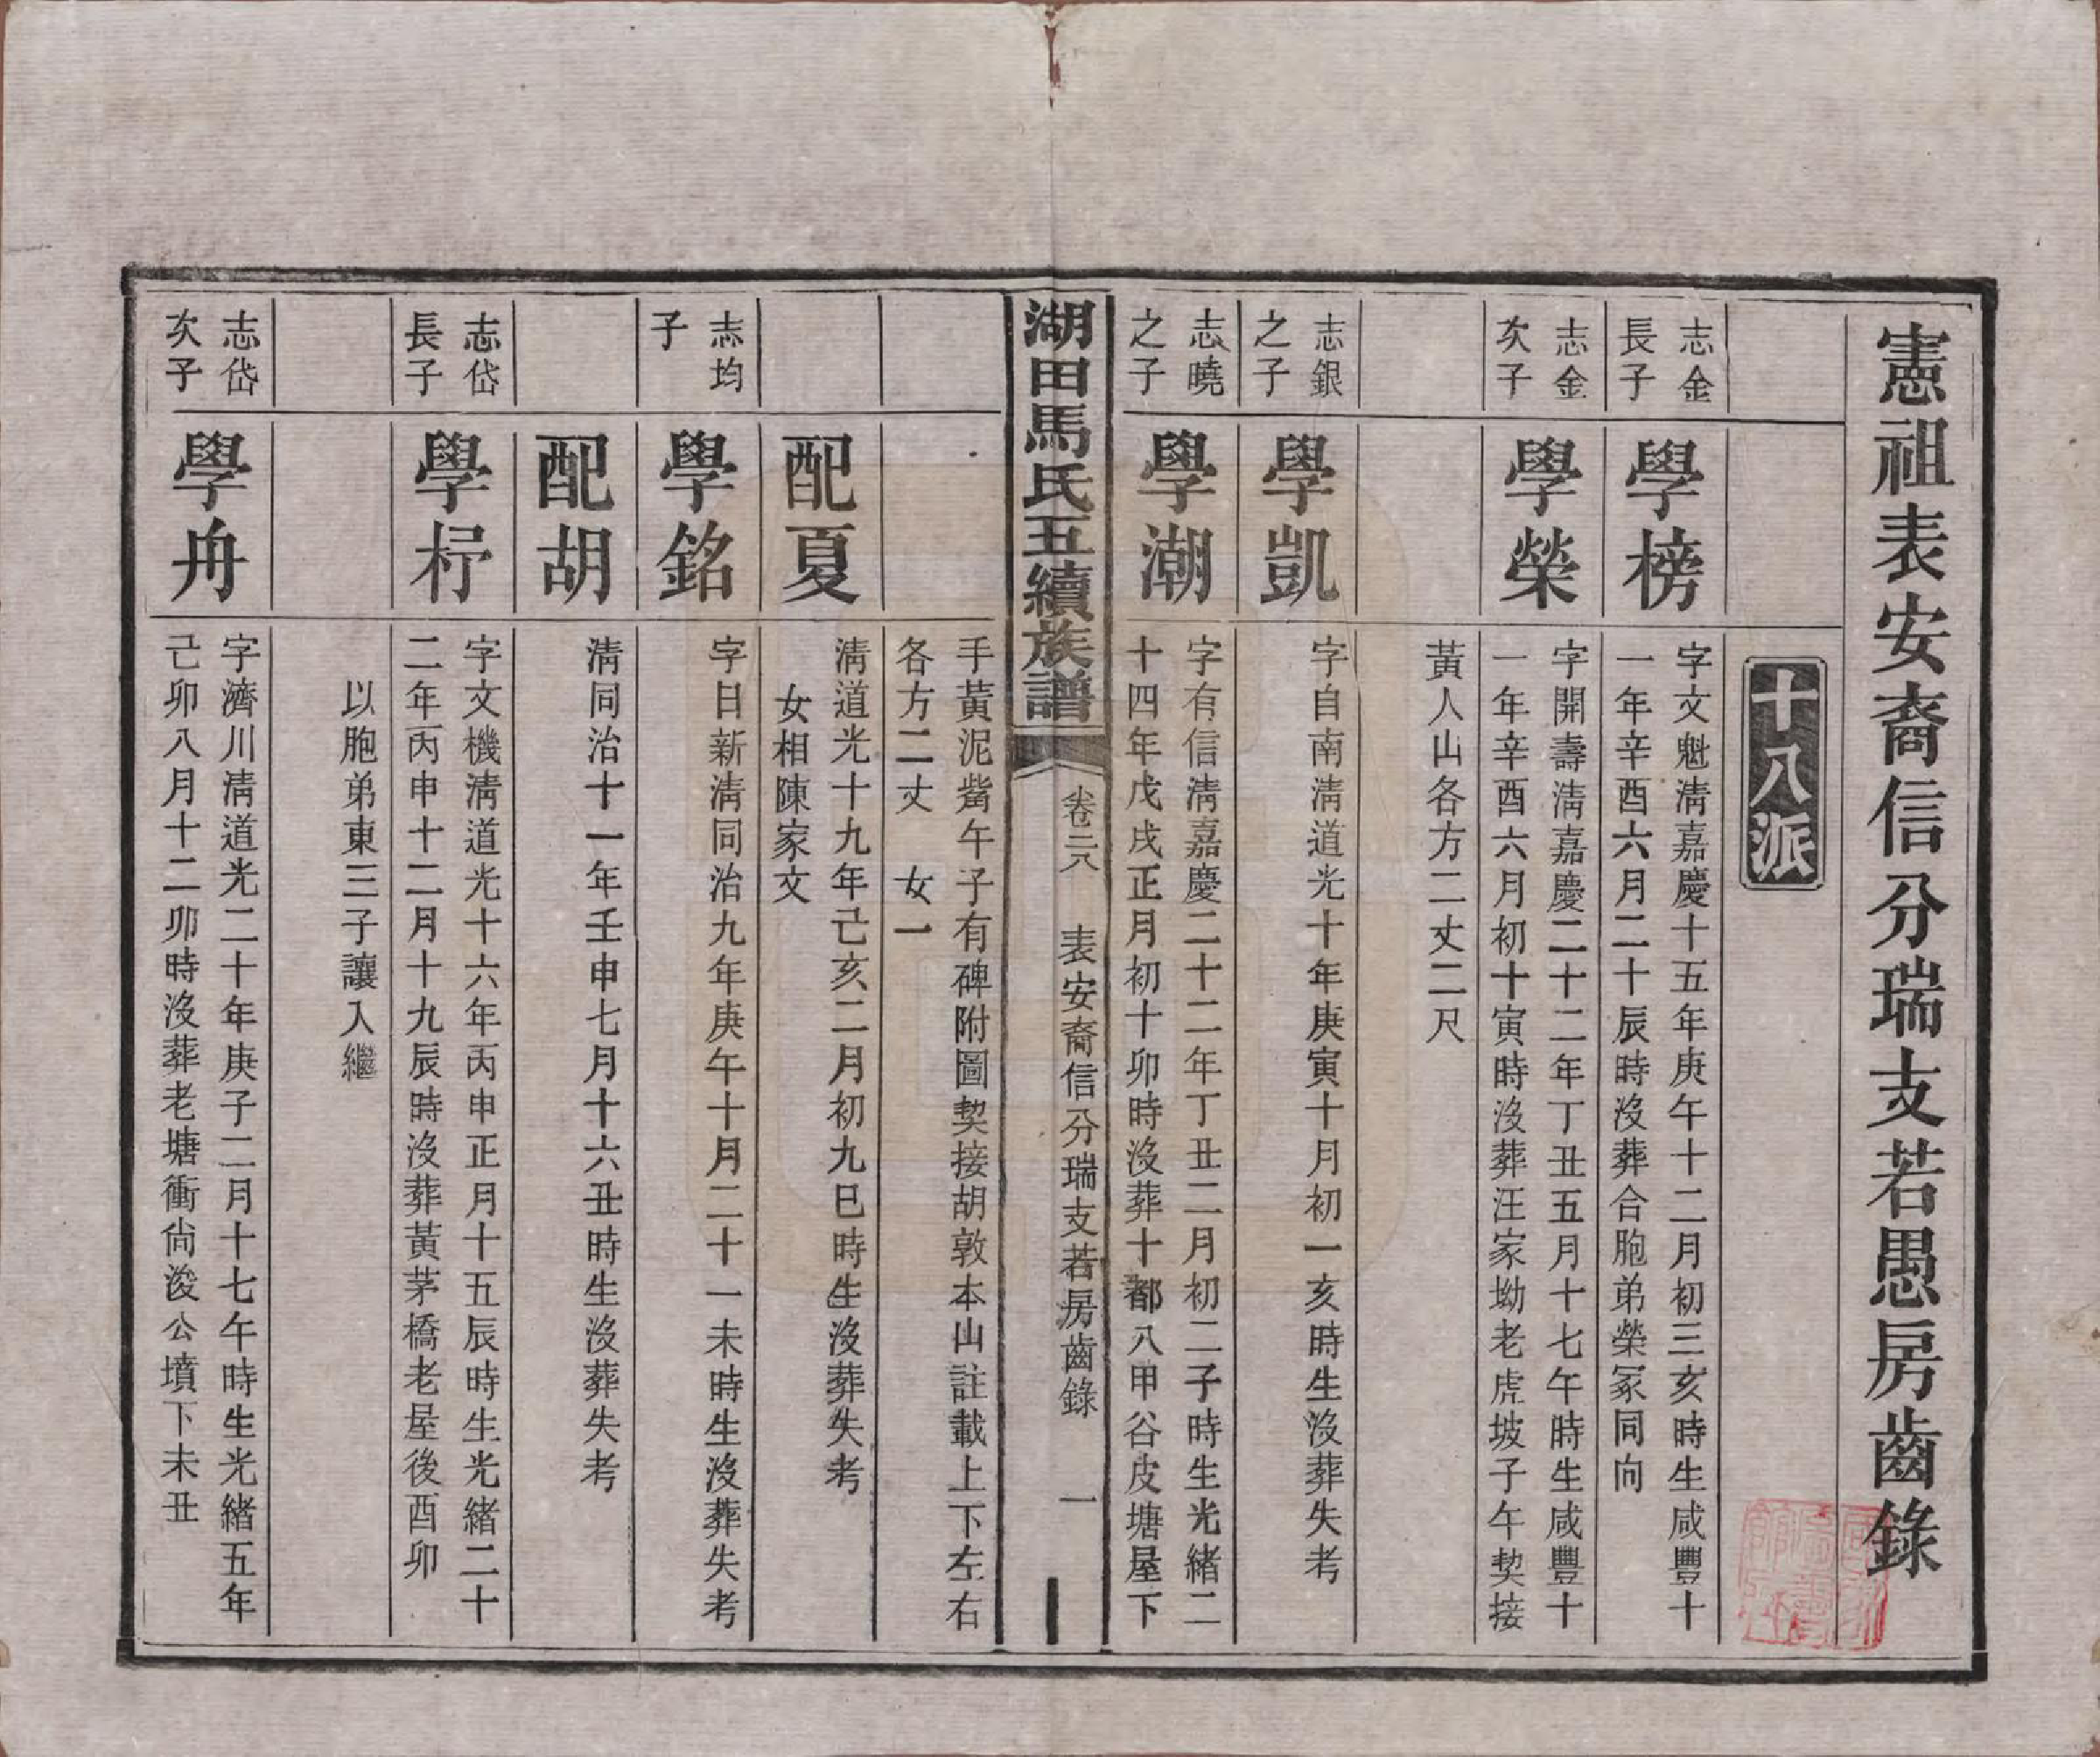 憲祖表安裔信分瑞支若愚房齒錄
十八派
志金
長子
學榜
字文魁淸嘉慶十五年庚午十二月初三亥時生咸豐十
一年辛酉六月二十辰時沒葬合胞弟榮冢同向
志金
次子
學榮
字開壽淸嘉慶二十二年丁丑五月十七午時生咸豐十
一年辛酉六月初十寅時沒葬汪家坳老虎坡子午契接
黃人山各方二丈二尺
志銀
之子
學凱
字自南淸道光十年庚寅十月初一亥時生沒葬失考
志曉
之子
學潮
字有信淸嘉慶二十二年丁丑二月初二子時生光緒二
十四年戊戌正月初十卯時沒葬十都八甲谷皮塘屋下
湖田馬氏五續族譜
卷二八
表安裔信分瑞支若房齒錄
一
手黃泥觜午子有碑附圖契接胡敦本山註載上下左右
各方二丈 女一
配夏
淸道光十九年己亥二月初九巳時生沒葬失考
女相陳家文
志均
子
學銘
字日新淸同治九年庚午十月二十一未時生沒葬失考
配胡
淸同治十一年壬申七月十六丑時生沒葬失考
志岱
長子
學杍
字文機淸道光十六年丙申正月十五辰時生光緒二十
二年丙申十二月十九辰時沒葬黃茅橋老屋後酉卯
以胞弟東三子讓入繼
志岱
次子
學舟
字濟川淸道光二十年庚子二月十七午時生光緒五年
己卯八月十二卯時沒葬老塘衝尙浚公墳下未丑